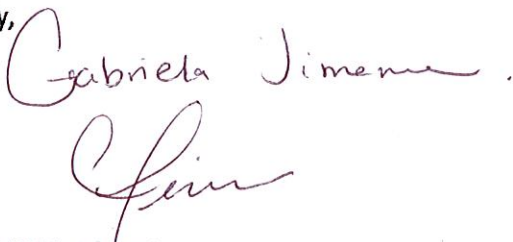 y,
Gabriela Jimenez.